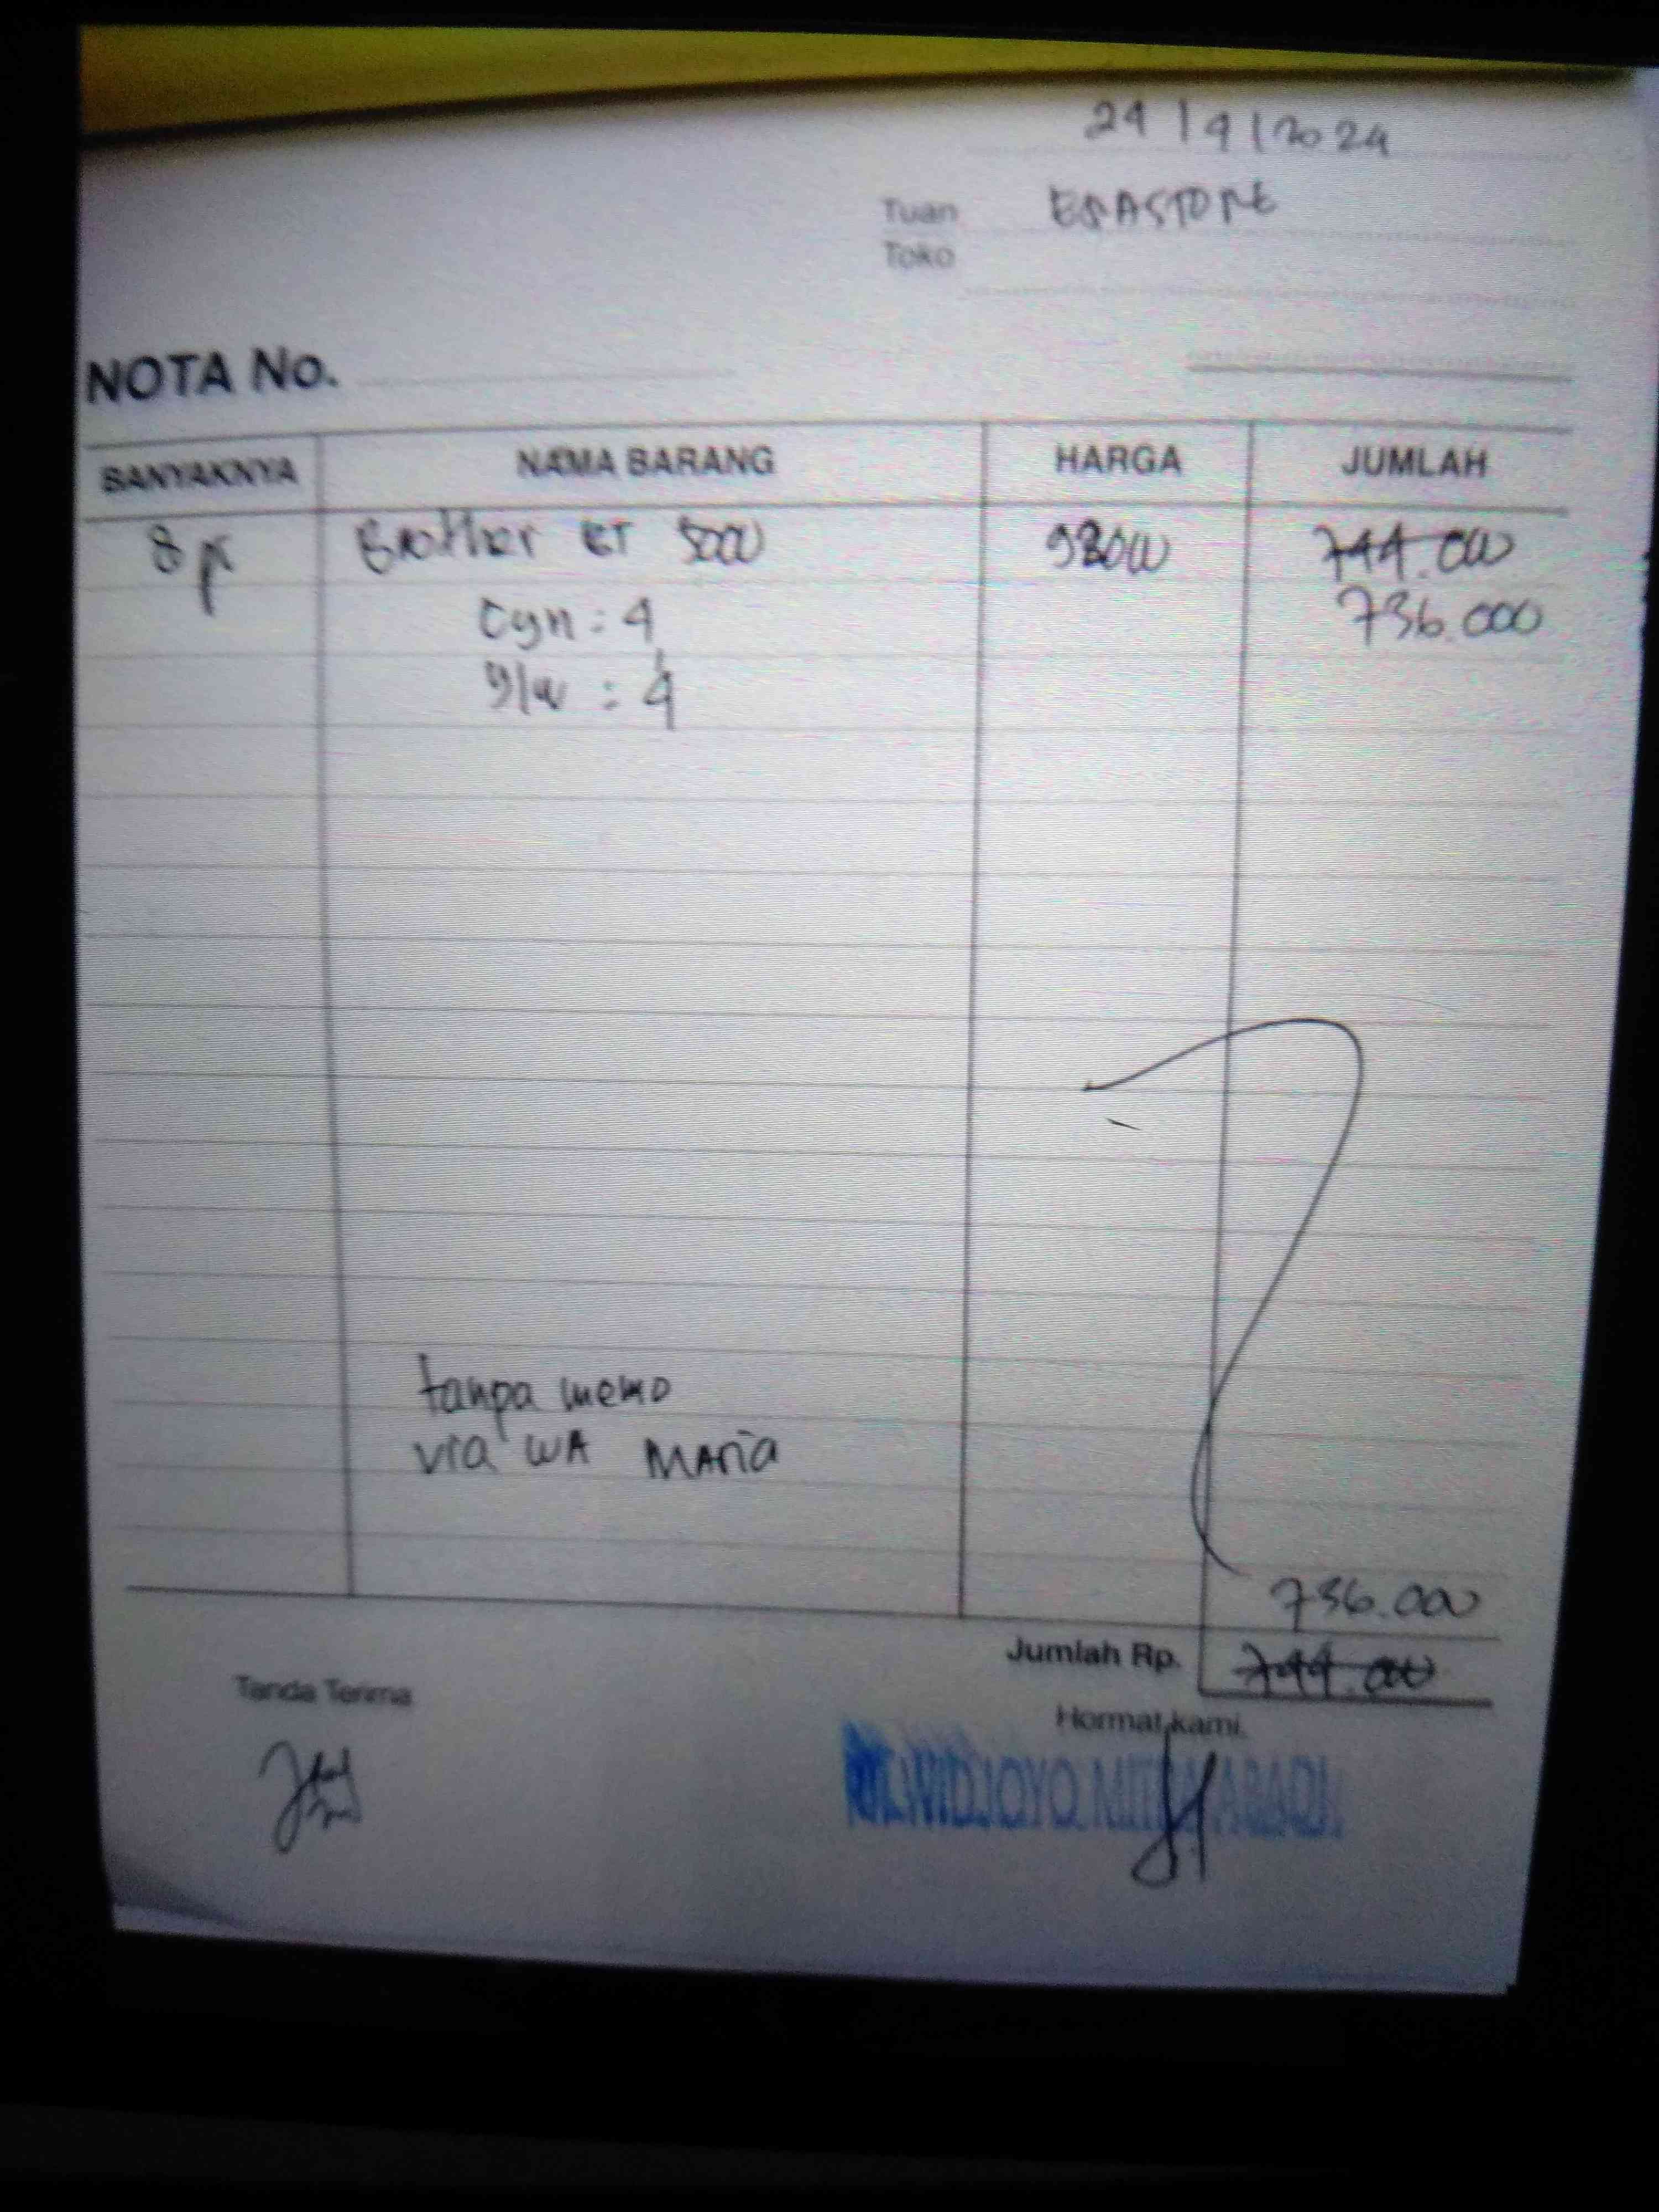 24/9/2024
Tuan
Toko
NOTA No.
BANYAKNYA NAMA BARANG HARGA JUMLAH
8 Brother BT 5000 92000 744.000
Cyn : 4 736.000
Ylw : 4
tanpa memo
via WA Maria
736.000
Jumlah Rp. 744.000
Tanda Terima
Hormat kami,
PT. WIDJOYO MITRA ABADI